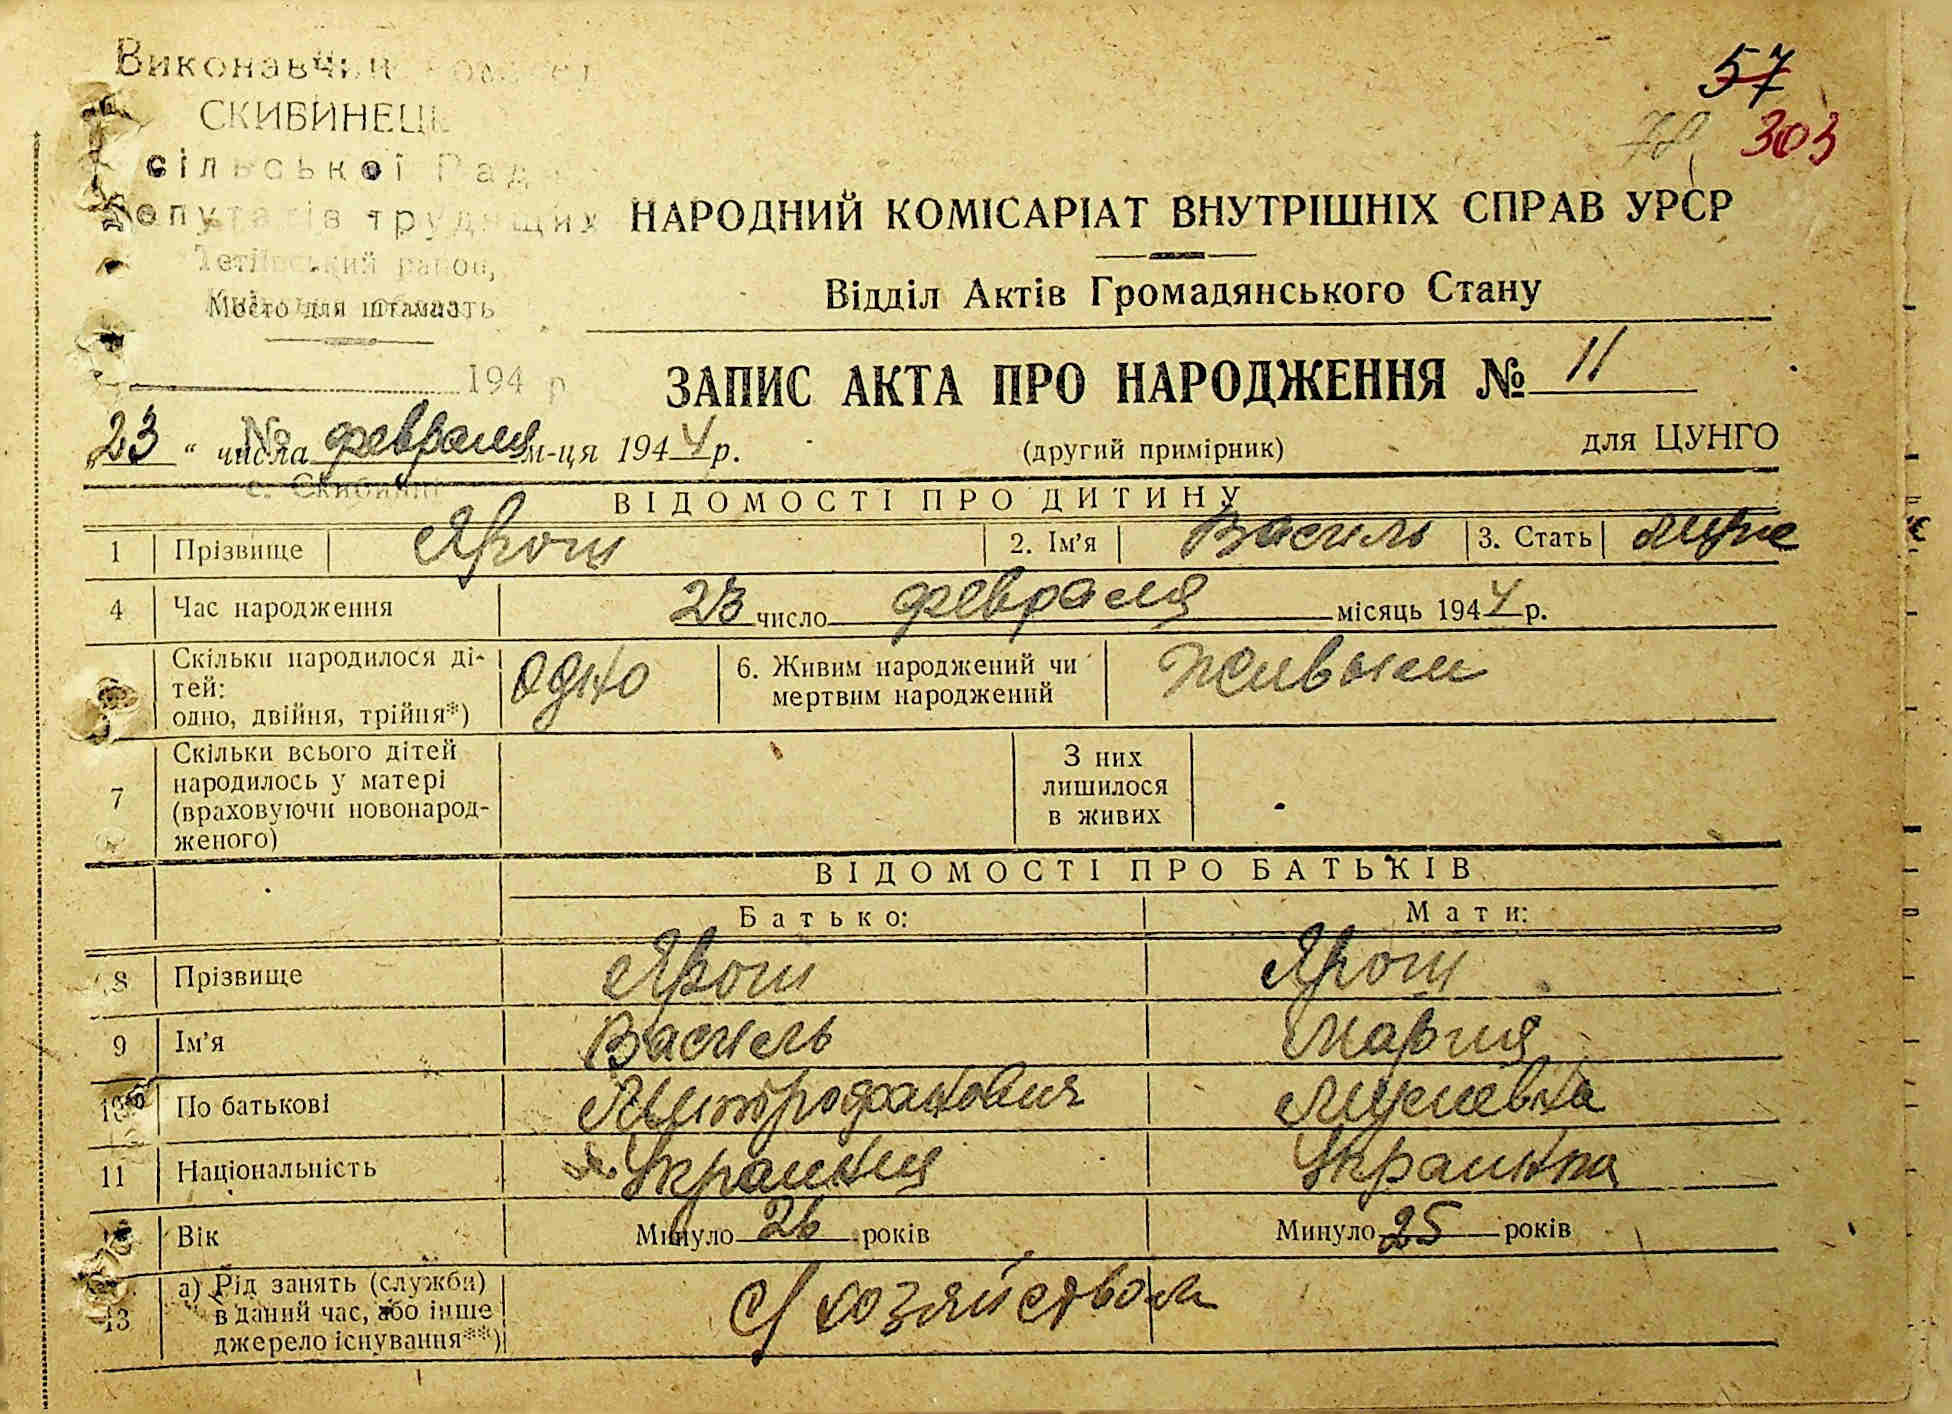 Виконавчий
СКИБИНЕЦЬ
сільської Рад
Депутатів трудящих
Тетіївський район,
Место для штампа
194 р
№
с. Скибинці
57
303
НАРОДНИЙ КОМІСАРІАТ ВНУТРІШНІХ СПРАВ УРСР
Відділ Актів Громадянського Стану
ЗАПИС АКТА ПРО НАРОДЖЕННЯ № 11
„23“ числа февраля м-ця 1944 р.
(другий примірник)
для ЦУНГО
ВІДОМОСТІ ПРО ДИТИНУ
1 Прізвище Ярош 2. Ім’я Василь 3. Стать муже
4 Час народження 23 число февраля місяць 1944 р.
Скільки народилося ді-
тей:
одно, двійня, трійня*)
одно
6. Живим народжений чи
мертвим народжений
Живым
7 Скільки всього дітей
народилось у матері
(враховуючи новонарод-
женого)
З них
лишилося
в живих
ВІДОМОСТІ ПРО БАТЬКІВ
Батько: Мати:
8 Прізвище Ярош Ярош
9 Ім’я Василь Мария
10 По батькові Митрофанович Мусиевна
11 Національність Украинец Украинка
Вік Минуло 26 років Минуло 25 років
13 а) Рід занять (служби)
в даний час, або інше
джерело існування**)
С/хозяйством